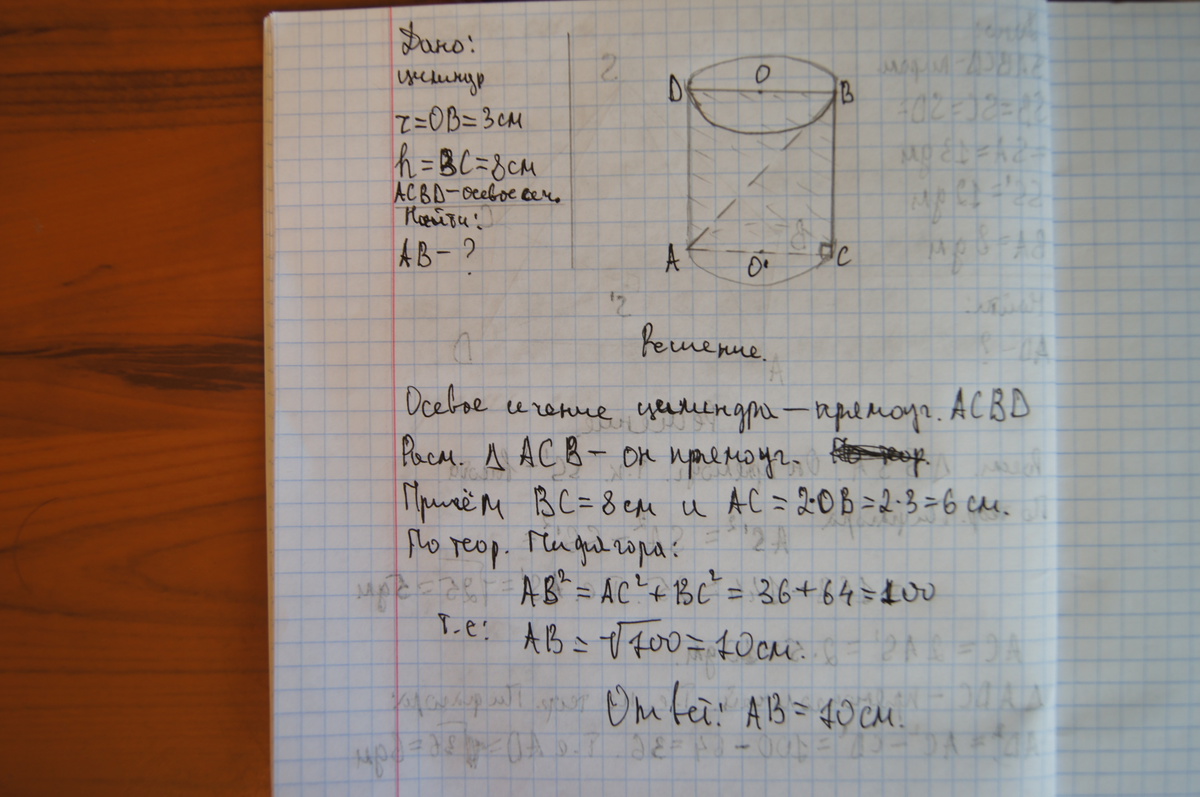 Дано:
цилиндр
r=OB=3см
h=BC=8см
ACBD-осевое сеч.
Найти:
AB-?
D O B
A O' C
Решение.
Осевое сечение цилиндра - прямоуг. ACBD
Расм. Δ ACB - он прямоуг.
Причём BC=8см и AC=2·OB=2·3=6см.
По теор. Пифагора:
AB²=AC²+BC²=36+64=100
т.е: AB=√100=10см.
Ответ: AB=10см.